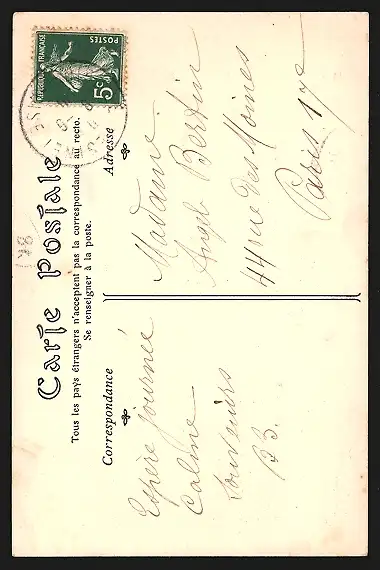 Carte Postale
Tous les pays étrangers n'acceptent pas la correspondance au recto.
Se renseigner à la poste.
Correspondance
Adresse
REPUBLIQUE FRANÇAISE
POSTES
5c
148
Espère journée
Caline
Souvenirs
B3.
Madame
Angel Bertin
44 rue des Moines
Paris 17e